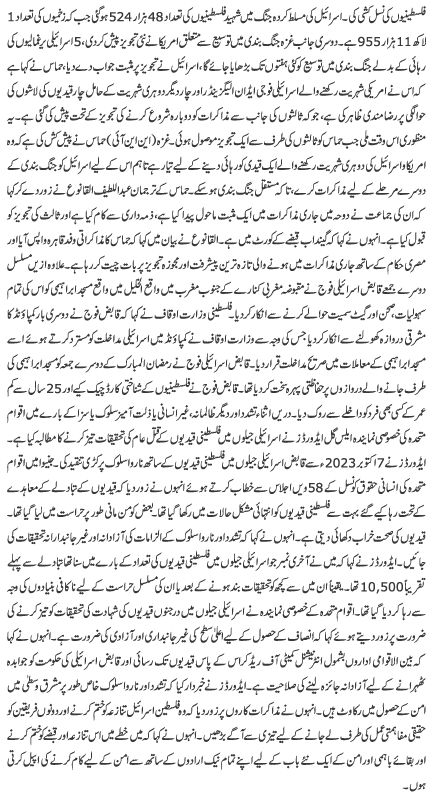 فلسطینیوں کی نسل کشی کی۔ اسرائیل کی مسلط کردہ جنگ میں شہید فلسطینیوں کی تعداد 48 ہزار 524 ہوگئی جب کہ زخمیوں کی تعداد 1
لاکھ 11 ہزار 955 ہے۔ دوسری جانب غزہ جنگ بندی میں توسیع سے متعلق امریکا نے نئی تجویز پیش کر دی، 5 اسرائیلی یرغمالیوں کی
رہائی کے بدلے جنگ بندی میں توسیع کو کئی ہفتوں تک بڑھایا جائے گا، اسرائیل نے تجویز پر مثبت جواب دے دیا، حماس نے کہا ہے
کہ اس نے امریکی شہریت رکھنے والے اسرائیلی فوجی ایڈان الیگزینڈر اور چار دیگر دوہری شہریت کے حامل چار قیدیوں کی لاشوں کی
حوالگی پر رضامندی ظاہر کی ہے، جو کہ ثالثوں کی جانب سے مذاکرات کو دوبارہ شروع کرنے کی تجویز کے تحت پیش کی گئی ہے۔ یہ
منظوری اس وقت ملی جب حماس کو ثالثوں کی طرف سے ایک تجویز موصول ہوئی۔ غزہ (این این آئی) حماس نے پیش کش کی ہے کہ وہ
امریکا و اسرائیل کی دوہری شہریت رکھنے والے ایک قیدی کو رہائی دینے کے لیے تیار ہے تاہم اس کے لیے اسرائیل کو جنگ بندی کے
دوسرے مرحلے کے لیے مذاکرات کرے، تاکہ مستقل جنگ بندی ہوسکے۔ حماس کے ترجمان عبداللطیف القانوع نے زور دے کر کہا
کہ ان کی جماعت نے دوحہ میں جاری مذاکرات میں ایک مثبت ماحول پیدا کیا ہے، ذمہ داری سے کام کیا ہے اور ثالث کی تجویز کو
قبول کیا ہے۔ انہوں نے کہا کہ گیند اب قبضے کے کورٹ میں ہے۔ القانوع نے بیان میں کہا کہ حماس کا مذاکراتی وفد قاہرہ واپس آیا اور
مصری حکام کے ساتھ جاری مذاکرات میں ہونے والی تازہ ترین پیشرفت اور مجوزہ تجویز پر بات چیت کر رہا ہے۔ علاوہ ازیں مسلسل
دوسرے جمعے قابض اسرائیلی فوج نے مقبوضہ مغربی کنارے کے جنوب مغرب میں واقع الخلیل میں واقع مسجد ابراہیمی کو اس کی تمام
سہولیات، صحن اور گیٹ سمیت حوالے کرنے سے انکار کردیا۔ فلسطینی وزارت اوقاف نے کہا کہ قابض فوج نے دوسری بار کمپاؤنڈ کا
مشرقی دروازہ کھولنے سے انکار کر دیا جس کی وجہ سے وزارت اوقاف نے کمپاؤنڈ میں اسرائیلی مداخلت کو مسترد کرتے ہوئے اسے
مسجد ابراہیمی کے معاملات میں صریح مداخلت قرار دیا۔ قابض فوج نے رمضان المبارک کے دوسرے جمعہ کو مسجد ابراہیمی کی
طرف جانے والے دروازوں پر حفاظتی پہرہ سخت کر دیا تھا۔ قابض فوج نے فلسطینیوں کے شناختی کارڈ چیک کیے اور 25 سال سے کم
عمر کے کسی بھی فرد کو داخلے سے روک دیا۔ دریں اثنا تشدد اور دیگر ظالمانہ، غیر انسانی یا ذلت آمیز سلوک یا سزا کے بارے میں اقوام
متحدہ کی خصوصی نمائندہ ایلس گل ایڈورڈز نے اسرائیلی جیلوں میں فلسطینی قیدیوں کے قتل عام کی تحقیقات تیز کرنے کا مطالبہ کیا ہے۔
ایڈورڈز نے 7 اکتوبر 2023ء سے قابض اسرائیلی جیلوں میں فلسطینی قیدیوں کے ساتھ ناروا سلوک پر کڑی تنقید کی۔ جنیوا میں اقوام
متحدہ کی انسانی حقوق کونسل کے 58 ویں اجلاس سے خطاب کرتے ہوئے انہوں نے زور دیا کہ قیدیوں کے تبادلے کے معاہدے
کے تحت رہا کیے گئے بہت سے فلسطینی قیدیوں کو انتہائی مشکل حالات میں رکھا گیا تھا۔ بعض کو من مانی طور پر حراست میں لیا گیا تھا۔ ان
کی صحت خراب دکھائی دیتی ہے۔ انہوں نے کہا کہ تشدد اور ناروا سلوک کے الزامات کی آزادانہ اور غیر جانبدارانہ تحقیقات کی
جائیں۔ ایڈورڈز نے کہا کہ میں نے آخری نمبر جو اسرائیلی جیلوں میں فلسطینی قیدیوں کی تعداد کے بارے میں سنا تھا تبادلے سے پہلے
تقریباً 10,500 تھا۔ یقیناً ان میں سے کچھ کو تحقیقات بند ہونے کے بعد یا ان کی مسلسل حراست کے لیے ناکافی بنیادوں کی وجہ
سے رہا کر دیا گیا تھا۔ اقوام متحدہ کے خصوصی نمائندہ نے اسرائیلی جیلوں میں درجنوں قیدیوں کی شہادت کی تحقیقات کو تیز کرنے کی
ضرورت پر زور دیتے ہوئے کہا کہ انصاف کے حصول کے لیے اعلیٰ سطح کی غیر جانبداری اور آزادی کی ضرورت ہے۔ انہوں نے کہا
کہ بین الاقوامی اداروں بشمول انٹرنیشنل کمیٹی آف ریڈ کراس کے پاس قیدیوں تک رسائی اور قابض اسرائیلی کی حکومت کو جوابدہ
ٹھہرانے کے لیے آزادانہ جائزہ لینے کی صلاحیت ہے۔ ایڈورڈز نے خبردار کیا کہ تشدد اور ناروا سلوک خاص طور پر مشرق وسطیٰ میں
امن کے حصول میں رکاوٹ ہیں۔ انہوں نے مذاکرات کاروں پر زور دیا کہ وہ فلسطین اسرائیل تنازعہ کو ختم کرنے اور دونوں فریقین کو
حقیقی مفاہمتی عمل کی طرف لے جانے کے لیے تیزی سے آگے بڑھیں۔ انہوں نے کہا کہ میں خطے میں اس تنازعہ اور قبضے کو ختم کرنے
اور بقائے باہمی اور امن کے ایک نئے باب کے لیے اپنے تمام نیک ارادوں کے ساتھ سے امن کے لیے کام کرنے کی اپیل کرتی
ہوں۔